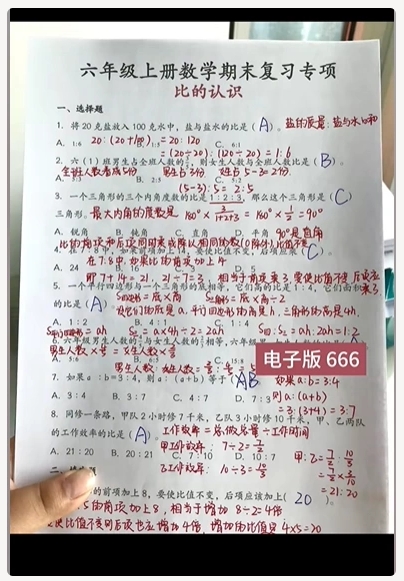 六年级上册数学期末复习专项
比的认识
一、选择题
1. 将20克盐放入100克水中，盐与水的比是（A）。盐的质量：盐与水的和
A. 1:6 20:(20+100)=20:120 C. 6:1
=(20÷20):(120÷20)=1:6
2. 六（1）班男生占全班人数的，则女生人数与全班人数比是（B）。
全班人数看成5份 男生占3份 女生占5-3=2份
A. B. 2:5 C. 5:2
(5-3):5=2:5
3. 一个三角形的三个内角度数的比是1:2:3，那么这个三角形是（C）
三角形。最大内角的度数是 180°×3/1+2+3=180°×=90°
A. 锐角 B. 钝角 C. 直角 D. 平角 90°是直角
比的前项和后项同时乘或除以相同的数(0除外),比值不变
4. 在7:8中，如果前项增加14，要使比值不变，后项应乘（C）。
A. 24 B. 16 C. 3
在7:8中,如果比的前项加上14
即7+14=21, 21÷7=3, 相当于前项乘3,要使比值不变,后项应
5. 一个平行四边形与一个三角形的底相等，它们的高的比是1:4，它们面积
的比是（A）。S四边形=底×高 S三角形=底×高÷2
A. 1:2 B. 4:1 C. 1:4
S四边形=ah S=a×4h÷2=2ah S四:S=ah:2ah=1:2
电子版 666
7. 如果a:b=3:4，则a:(a+b)等于（AB）如果a:b=3:4
则a:(a+b)
A. 3:4 B. 3:7 C. 4:7 D. 7:3
=3:(3+4)=3:7
8. 同修一条路，甲队2小时修7千米，乙队3小时修10千米，甲、乙两队
的工作效率的比是（A）。工作效率=总工作量÷工作时间
甲工作效率: 7÷2=7/2
A. 21:20 B. 20:21 C. 7:10 D. 10:7
乙工作效率: 10÷3=10/3
甲:乙=7/2:10/3
=21:20
的前项加上8，要使比值不变，后项应该加上（20）。
的前项加上8, 相当于增加 8÷2=4倍
比值不变,则后项也应增加4倍,增加的比值是 4×5=20